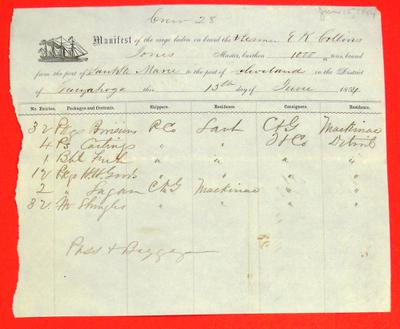 Crew 28
June 13, 1854
Manifest of the cargo laden on board the Steamer E K Collins
Jones Master, burthen 1000 tons, bound
from the port of Sault Ste Marie to the port of Cleveland in the District
of Cuyahoga this 13th day of June 1854
No. Entries. Packages and Contents. Shippers. Residence. Consignees. Residence.
32 Pkgs P Co Saut C & G Mackinac
4 Ps Castings " " & Co Detroit
1 Bbl " " " "
12 Pkgs " " " "
2 " Sugar C & G Mackinac " "
32 M Shingles " " " "
Pass & Baggage